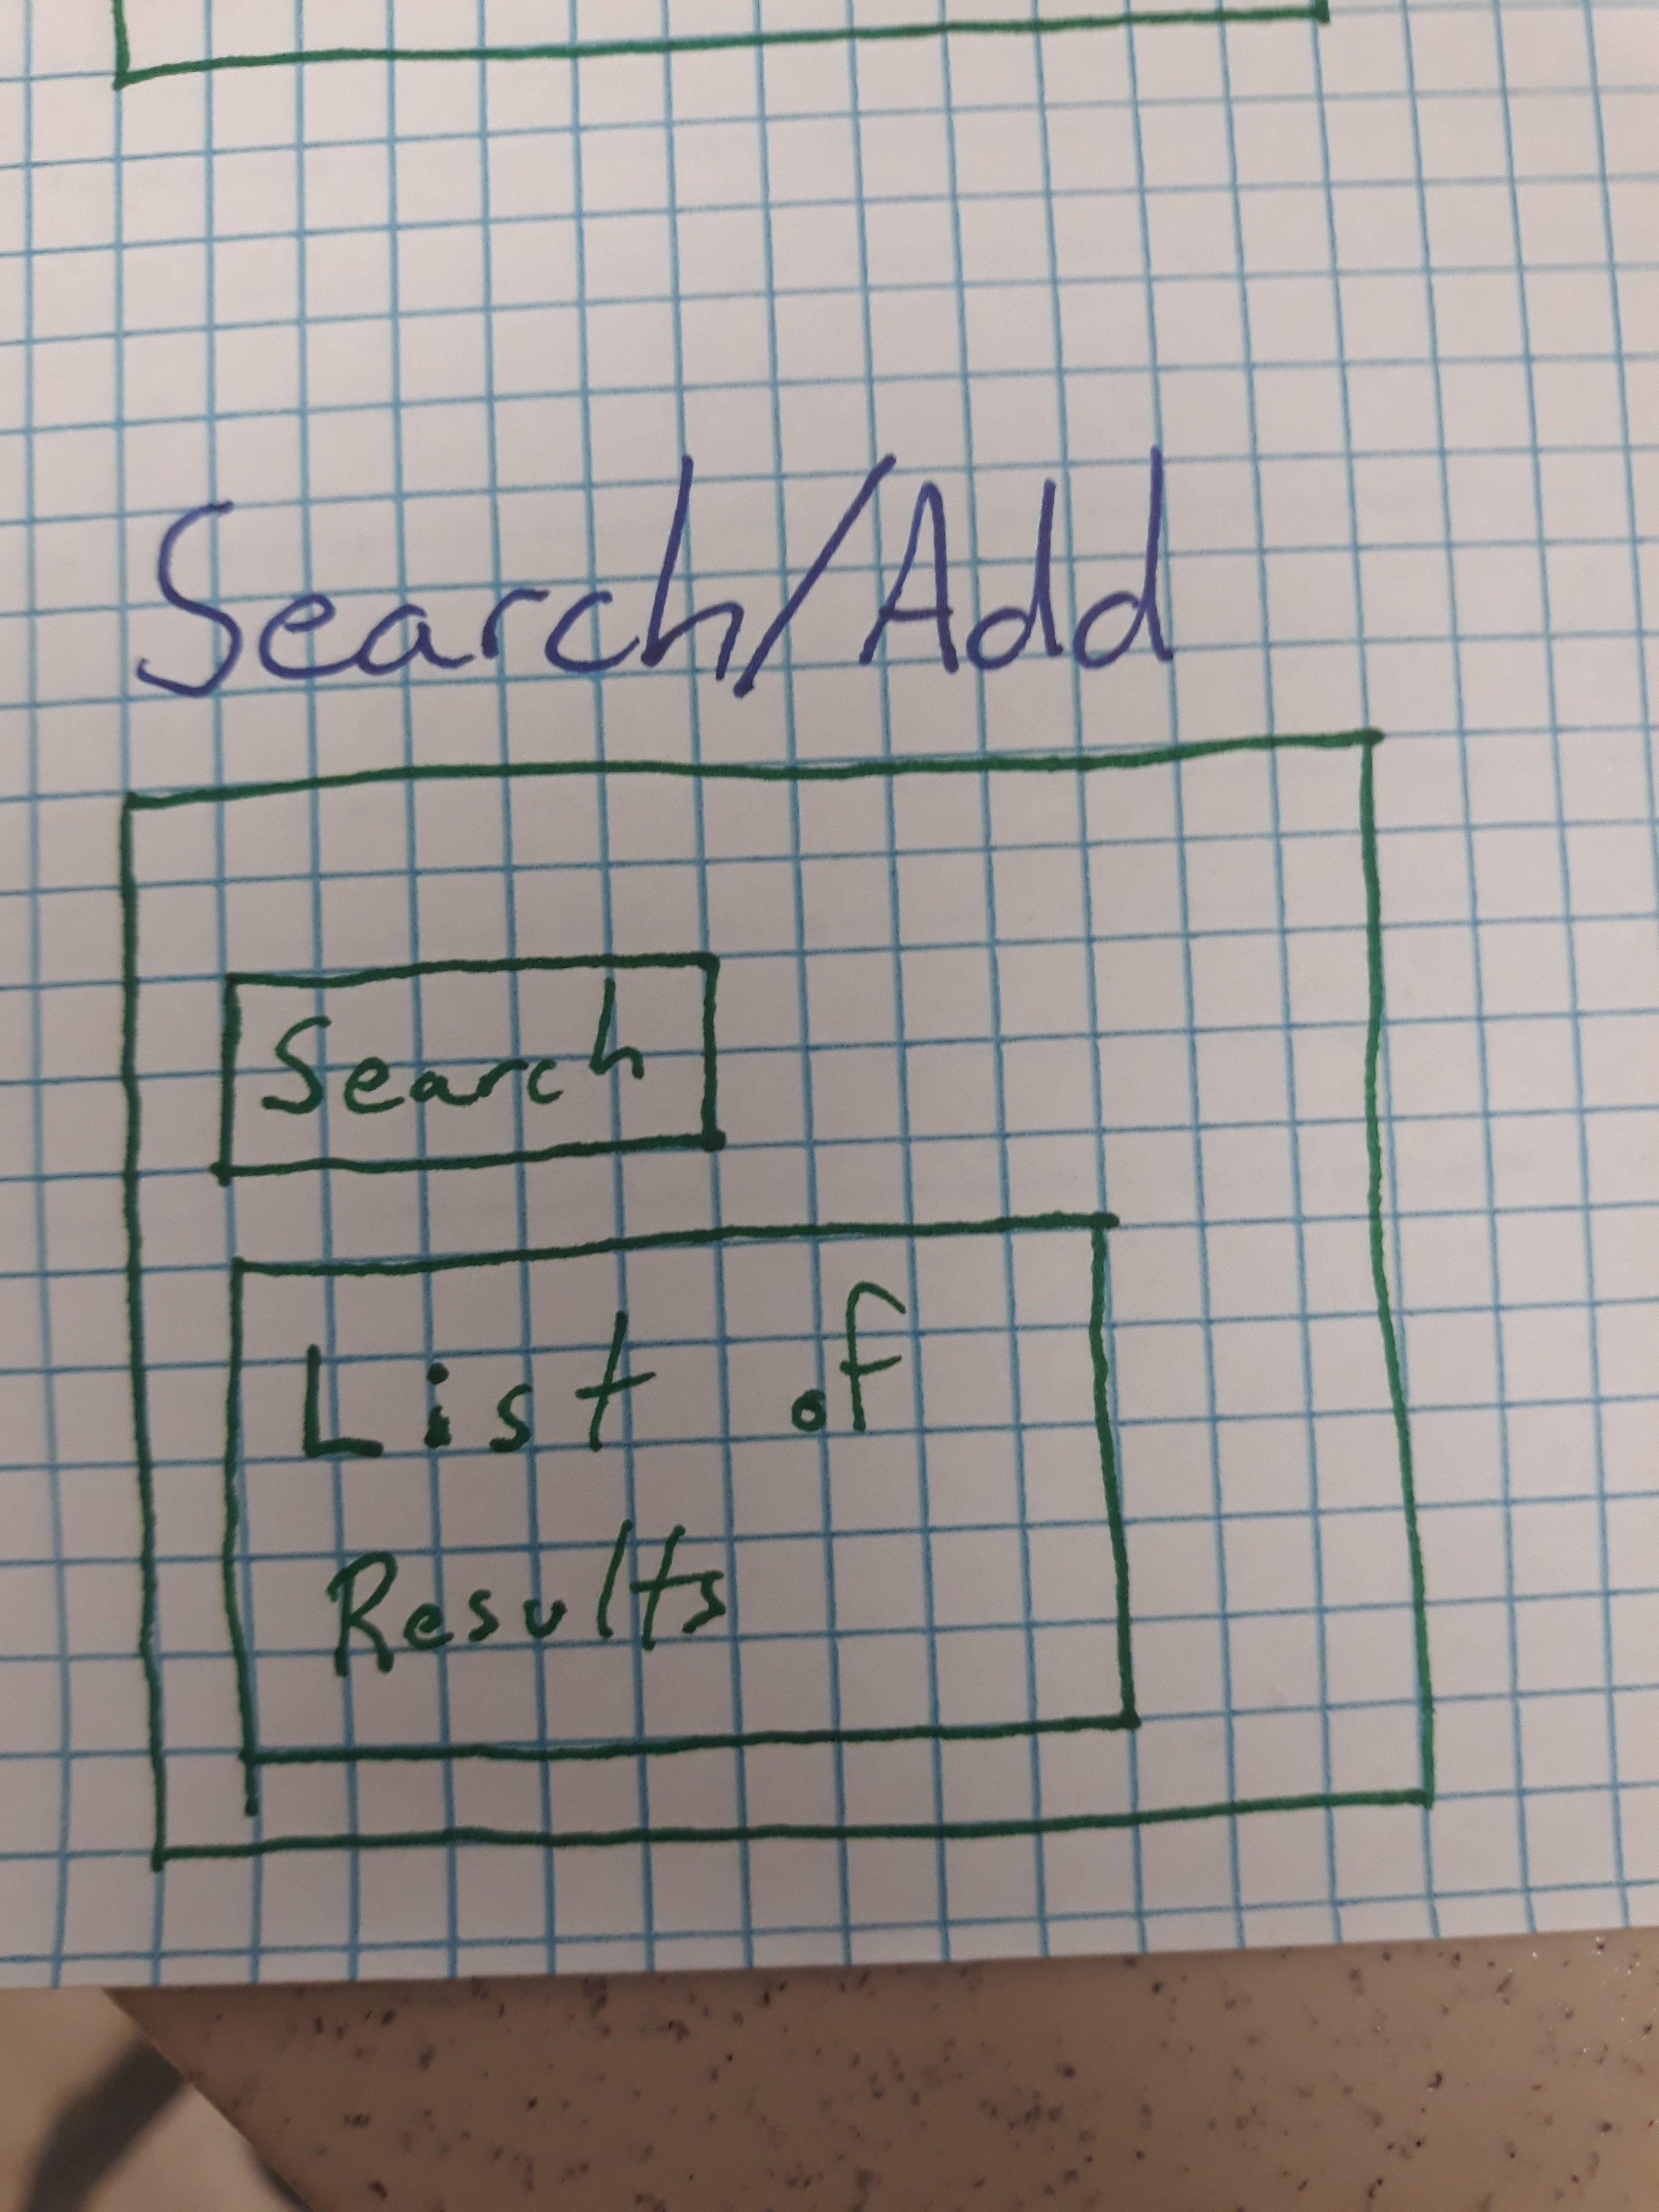 Search/Add
Search
List of
Results